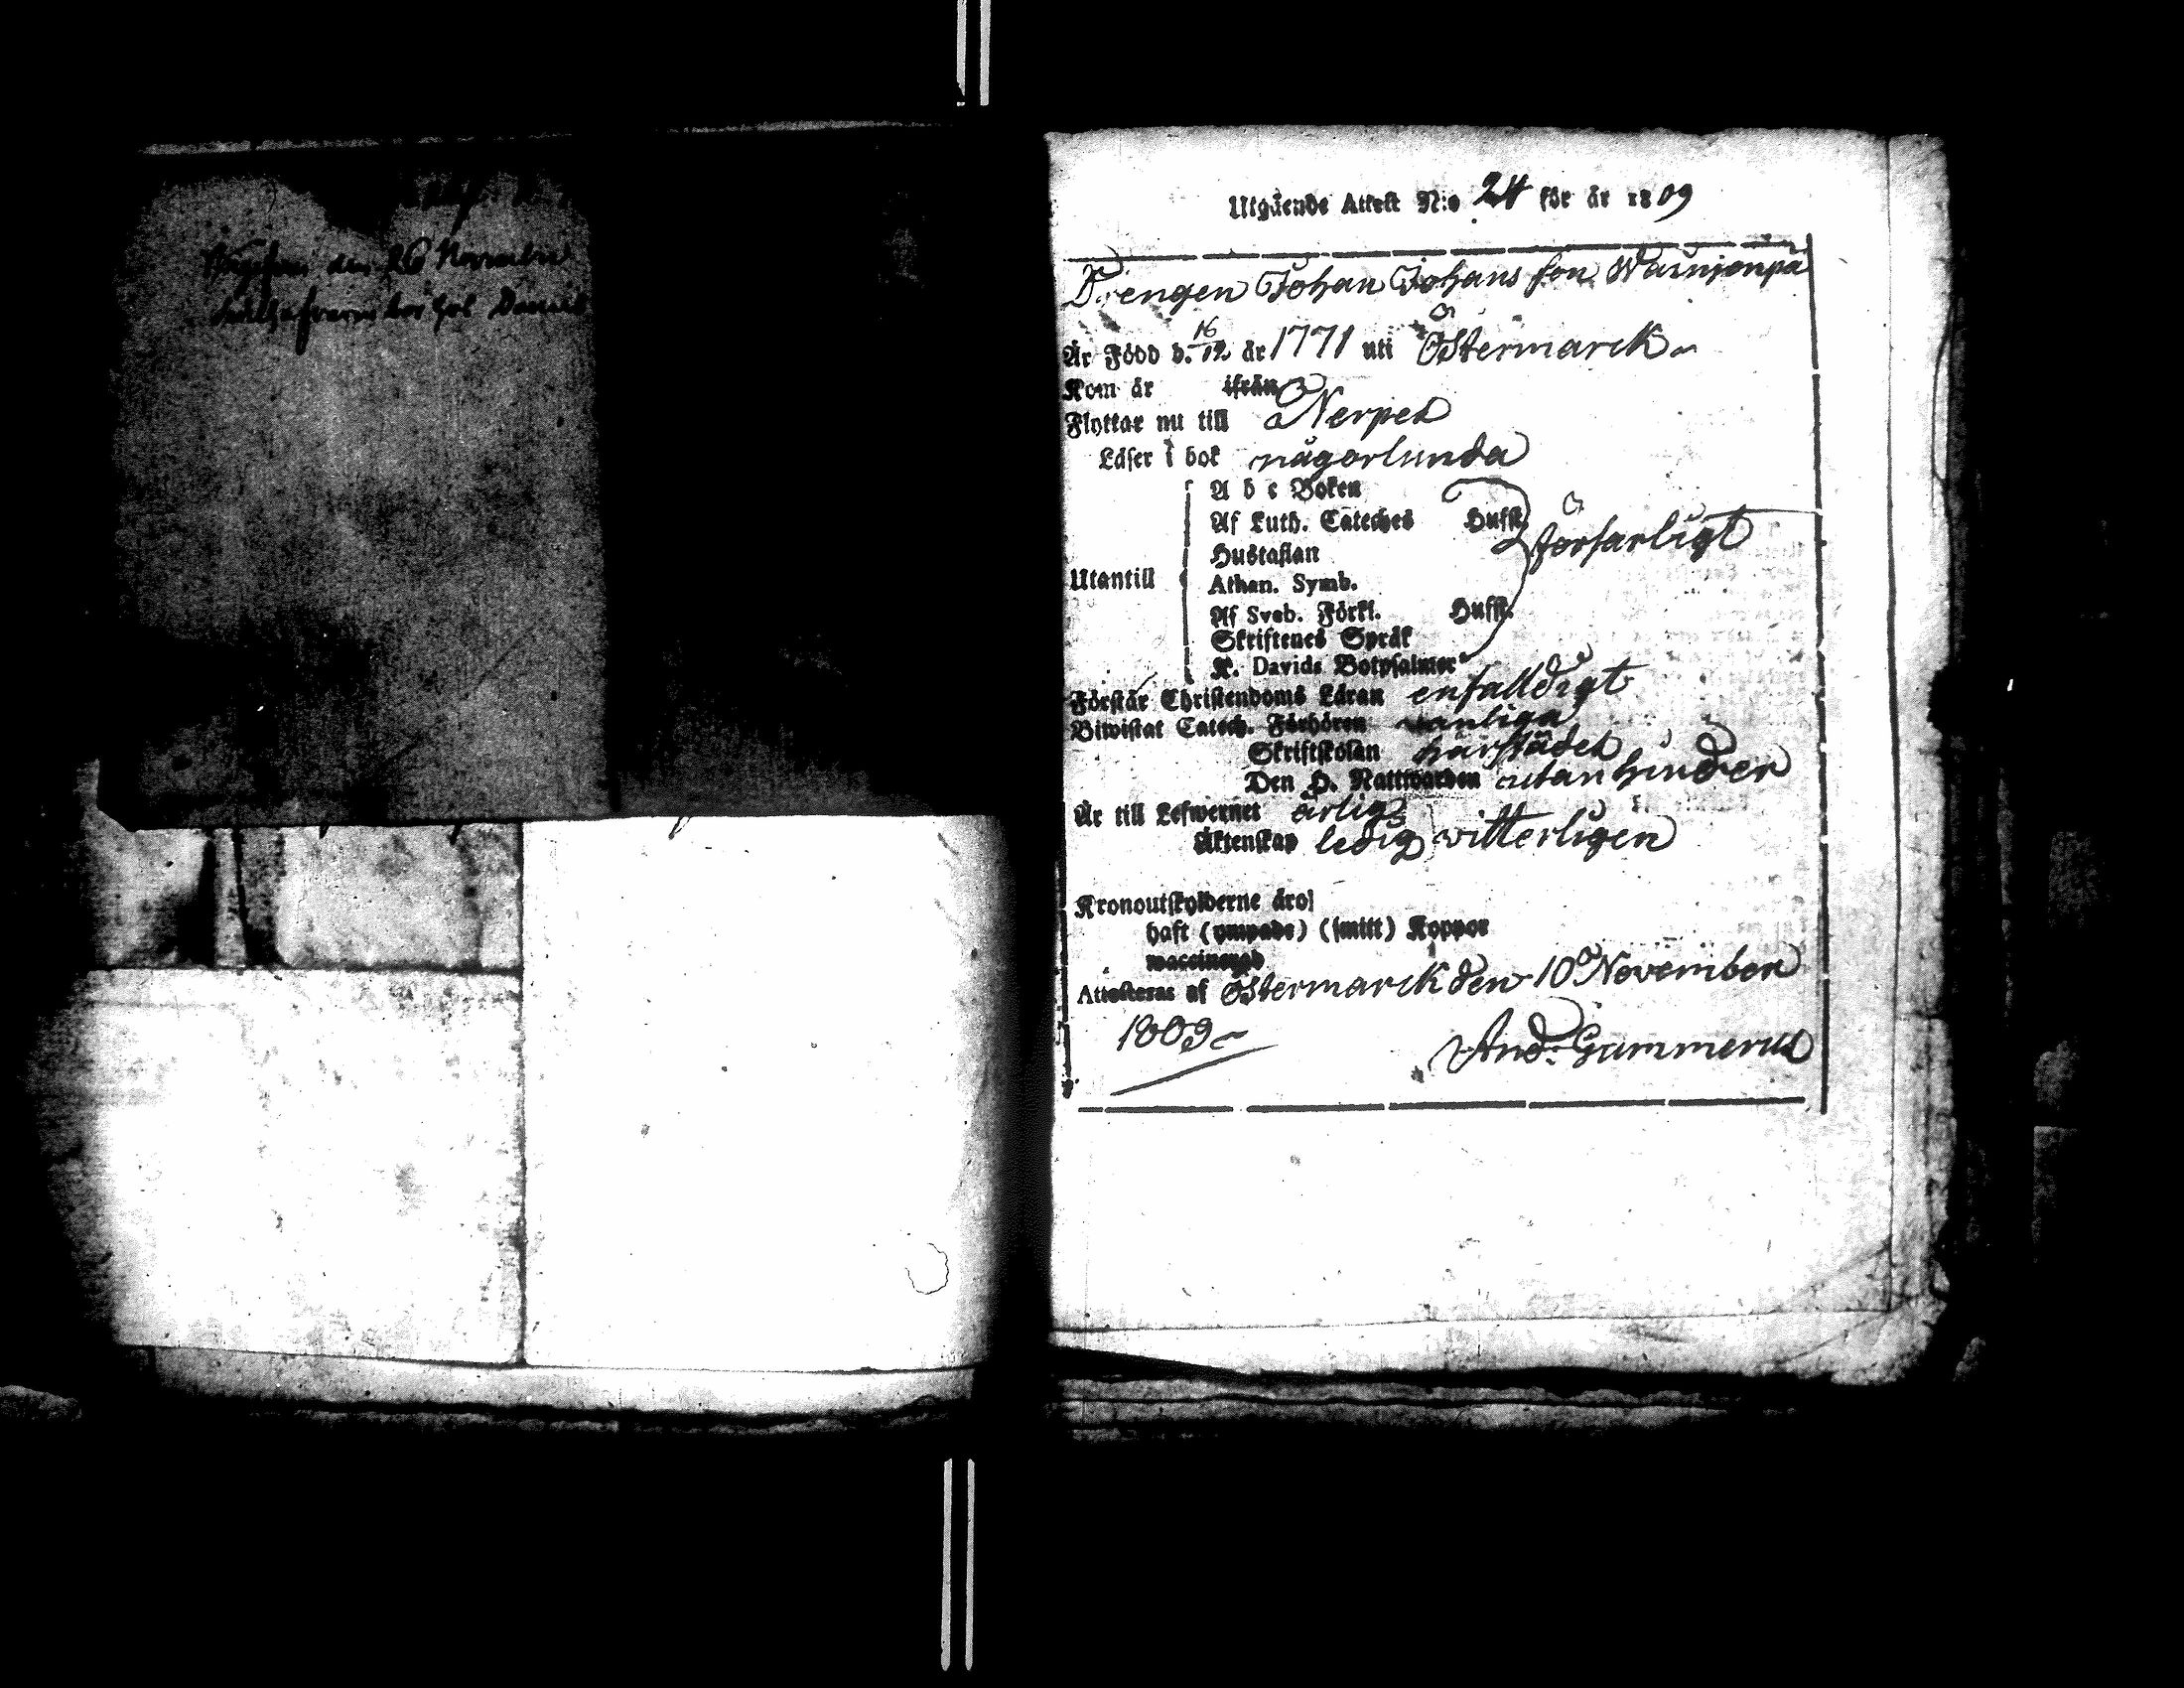 den 26 November
Utgående Attest N:o 24 för år 1809
Drengen Johan Johans son Warnionpä
Är Född d. 16/12 år 1771 uti Östermarck
Kom år ifrån
Flyttar nu till Nerpes
Läser i bok någorlunda
A b c Boken
Af Luth. Cateches Husst.
försarligt
Hustaflan
Utantill
Athan. Symb.
Af Sveb. Förkl. Husst.
Skriftenes Språk
K. Davids Botpsalmer
Förstår Christendoms Läran enfalldigt
Biwistat Catech. Förhören wanliga
Skriftskolan härstädes
Den H. Nattwarden utan hinder
Är till Lefwernet ärlig
Äktenskap ledig witterligen
Kronoutskylderne äro
haft (ympade) (smitt) Koppor
Attesteras af Östermarck den 10 November
1809
And: Gummerus